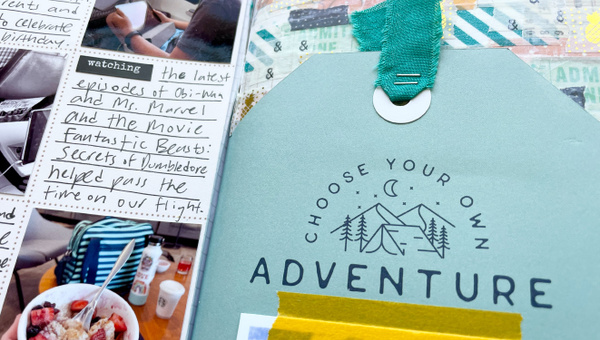 to celebrate
birthday.
watching
the latest
episodes of Obi-Wan
and Ms. Marvel
and the movie
Fantastic Beasts:
Secrets of Dumbledore
helped pass the
time on our flight.
&
&
&
ADMIT
CHOOSE YOUR OWN
ADVENTURE